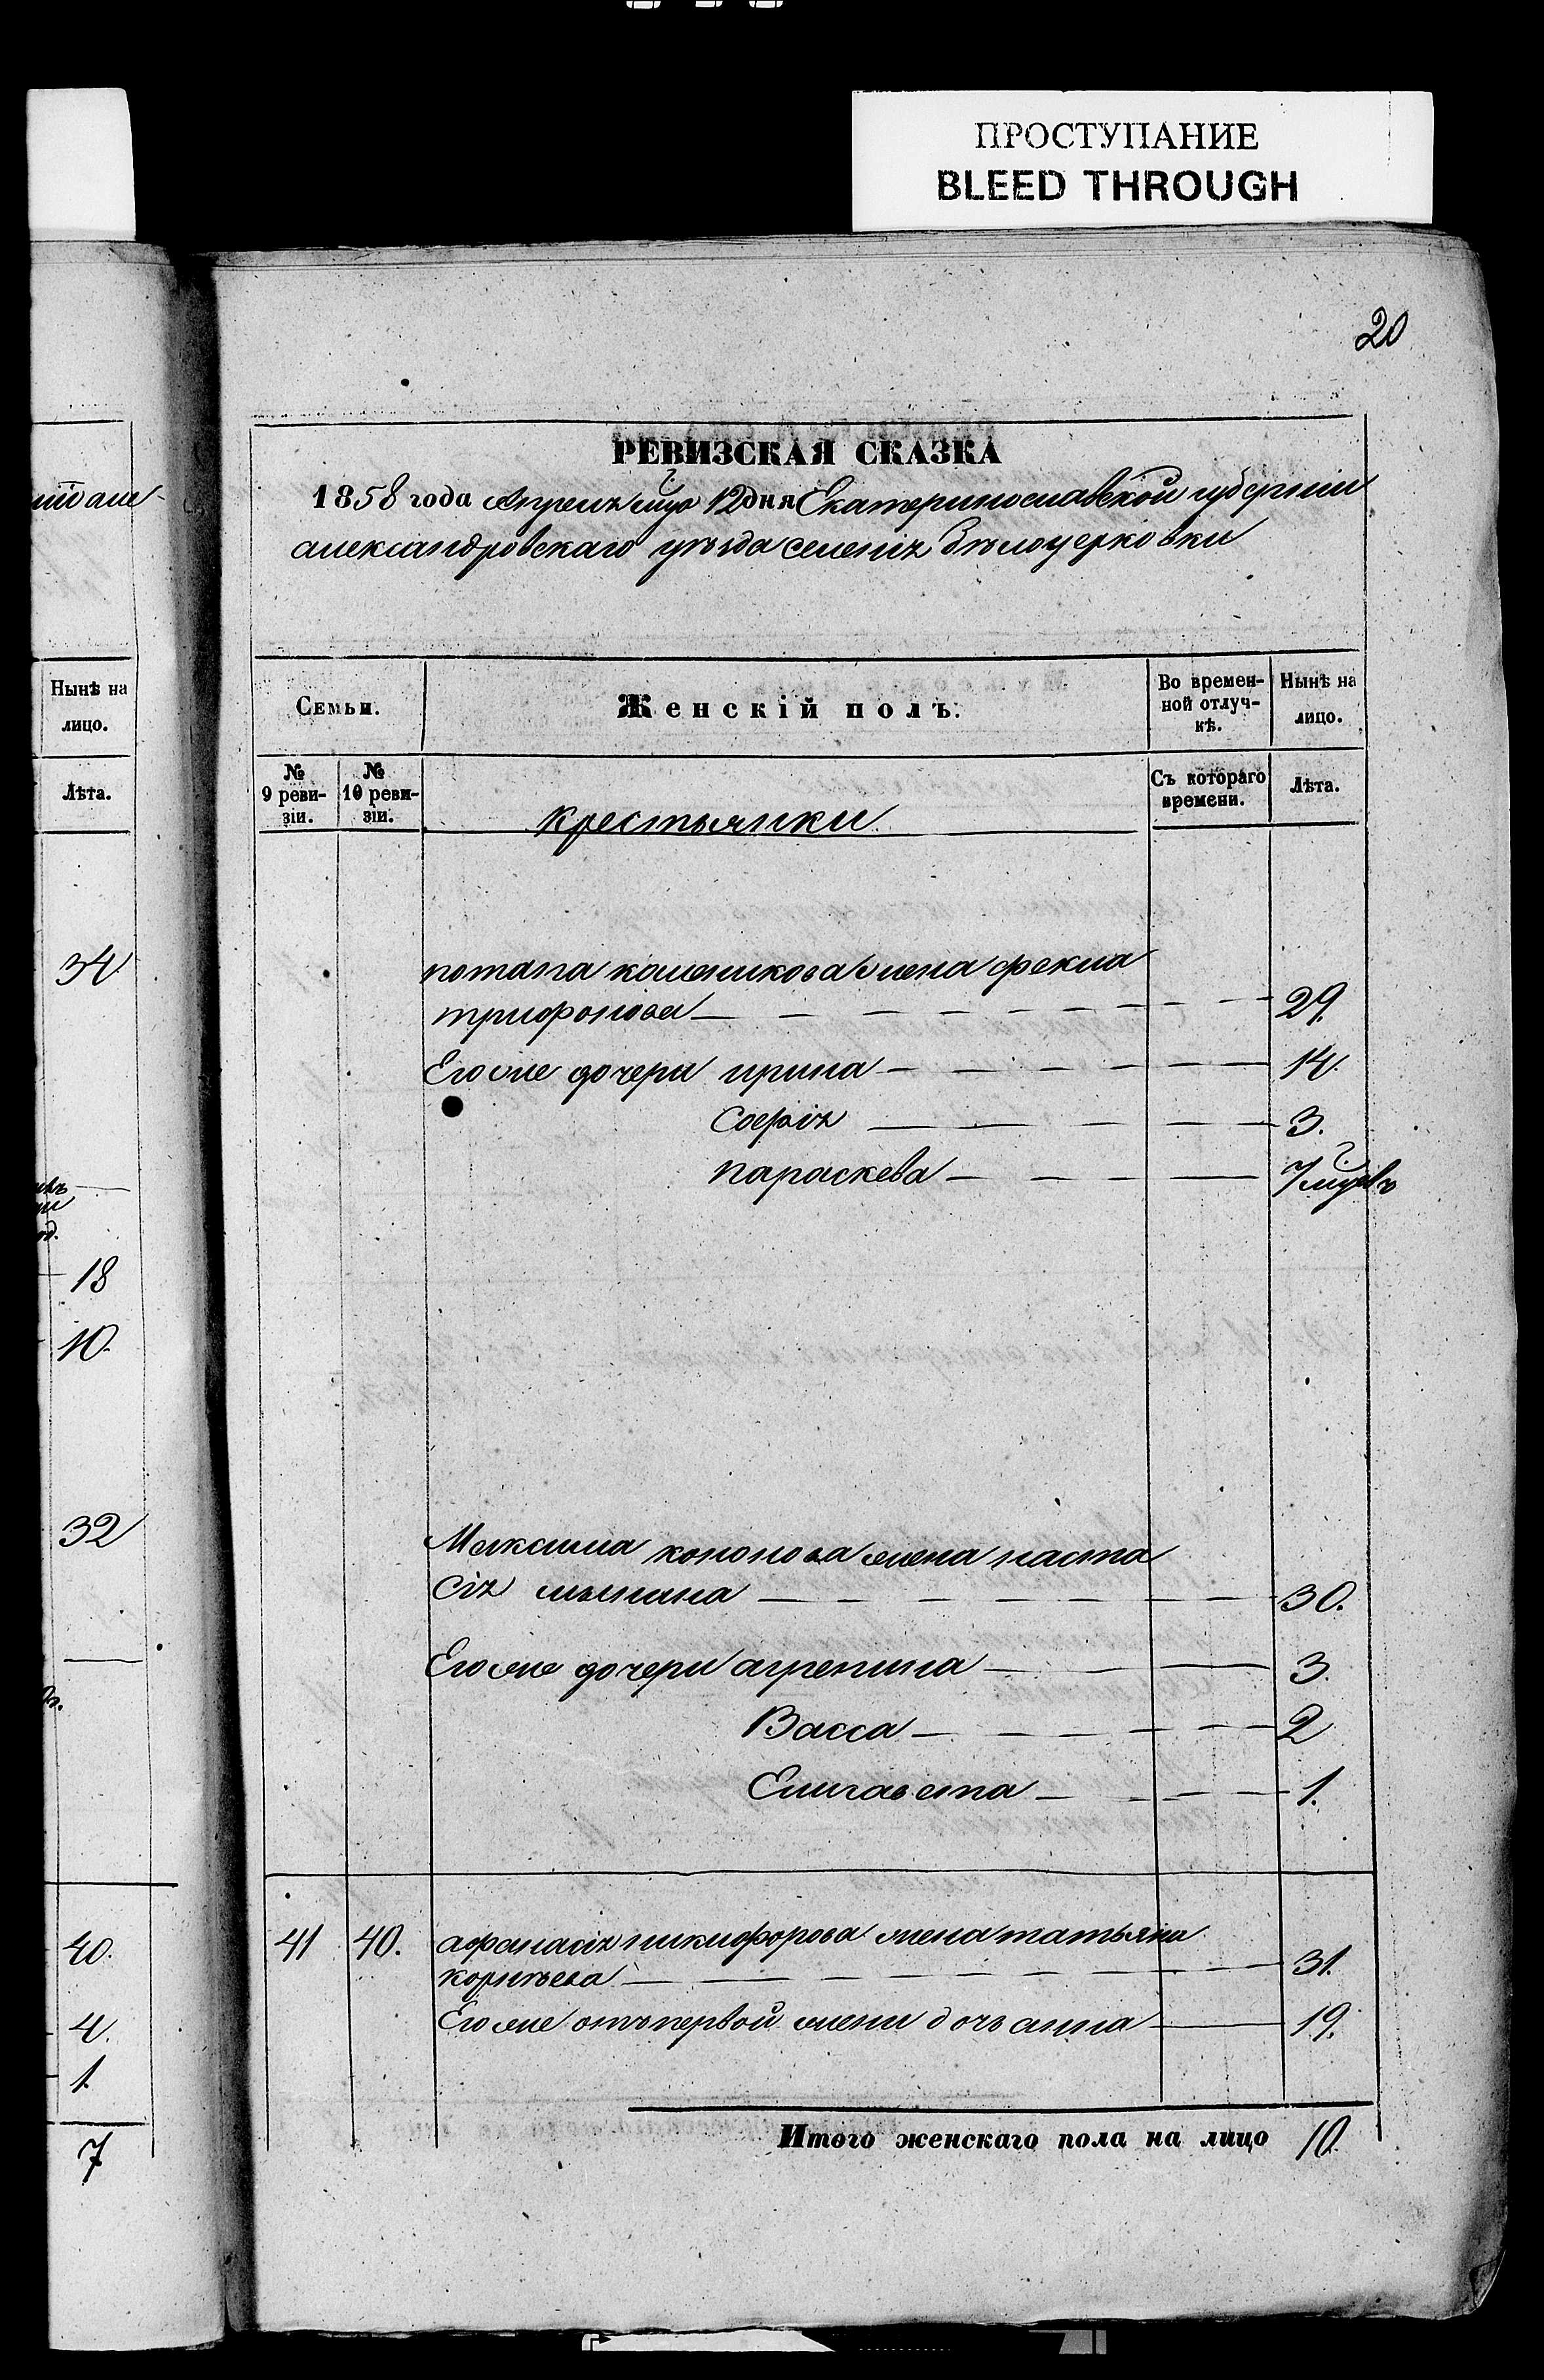 ПРОСТУПАНИЕ
BLEED THROUGH
20
РЕВИЗСКАЯ СКАЗКА
1858 года Апреля мца 12 дня Екатеринославской губернии
александровскаго уѣзда селенія Бѣлоцерковки
Семьи.
Женскій полъ.
Во времен-
ной отлуч-
кѣ.
Нынѣ на
лицо.
№
9 реви-
зіи.
№
10 реви-
зіи.
крестьянки
Съ котораго
времени.
Лѣта.
потапа жена фекла
трифонова 29.
Его же дочери ирина 14.
Софія 3.
параскева 7 мцовъ
Максима кононова жена наста
сія 30.
Его же дочери агрепина 3.
Васса 2
Елизавета 1.
41 40. афанасія никифорова жена татьяна
корнѣева 31.
Его же отъ первой жены дочь анна 19.
Итого женскаго пола на лицо 10.
Нынѣ на
лицо.
Лѣта.
34
18
10.
32
40.
4.
1.
7